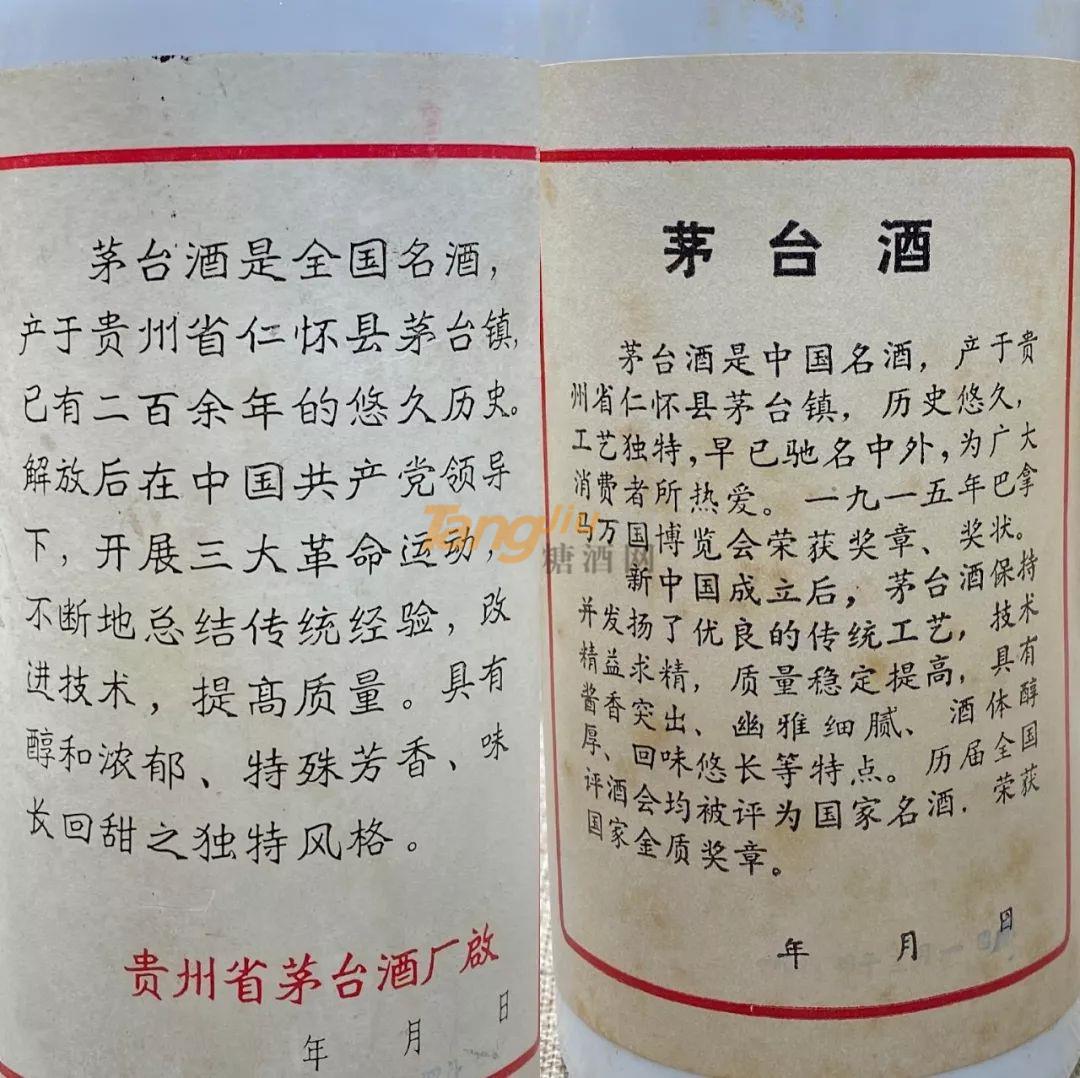 茅台酒是全国名酒，
产于贵州省仁怀县茅台镇，
已有二百余年的悠久历史。
解放后在中国共产党领导
下，开展三大革命运动，
不断地总结传统经验，改
进技术，提高质量。具有
醇和浓郁、特殊芳香、味
长回甜之独特风格。
贵州省茅台酒厂啟
年 月 日
茅台酒
茅台酒是中国名酒，产于贵
州省仁怀县茅台镇，历史悠久，
工艺独特，早已驰名中外，为广大
消费者所热爱。一九一五年巴拿
马万国博览会荣获奖章、奖状。
新中国成立后，茅台酒保持
并发扬了优良的传统工艺，技术
精益求精，质量稳定提高，具有
酱香突出、幽雅细腻、酒体醇
厚、回味悠长等特点。历届全国
评酒会均被评为国家名酒．荣获
国家金质奖章。
年 月 日
Tangjiu
糖酒网